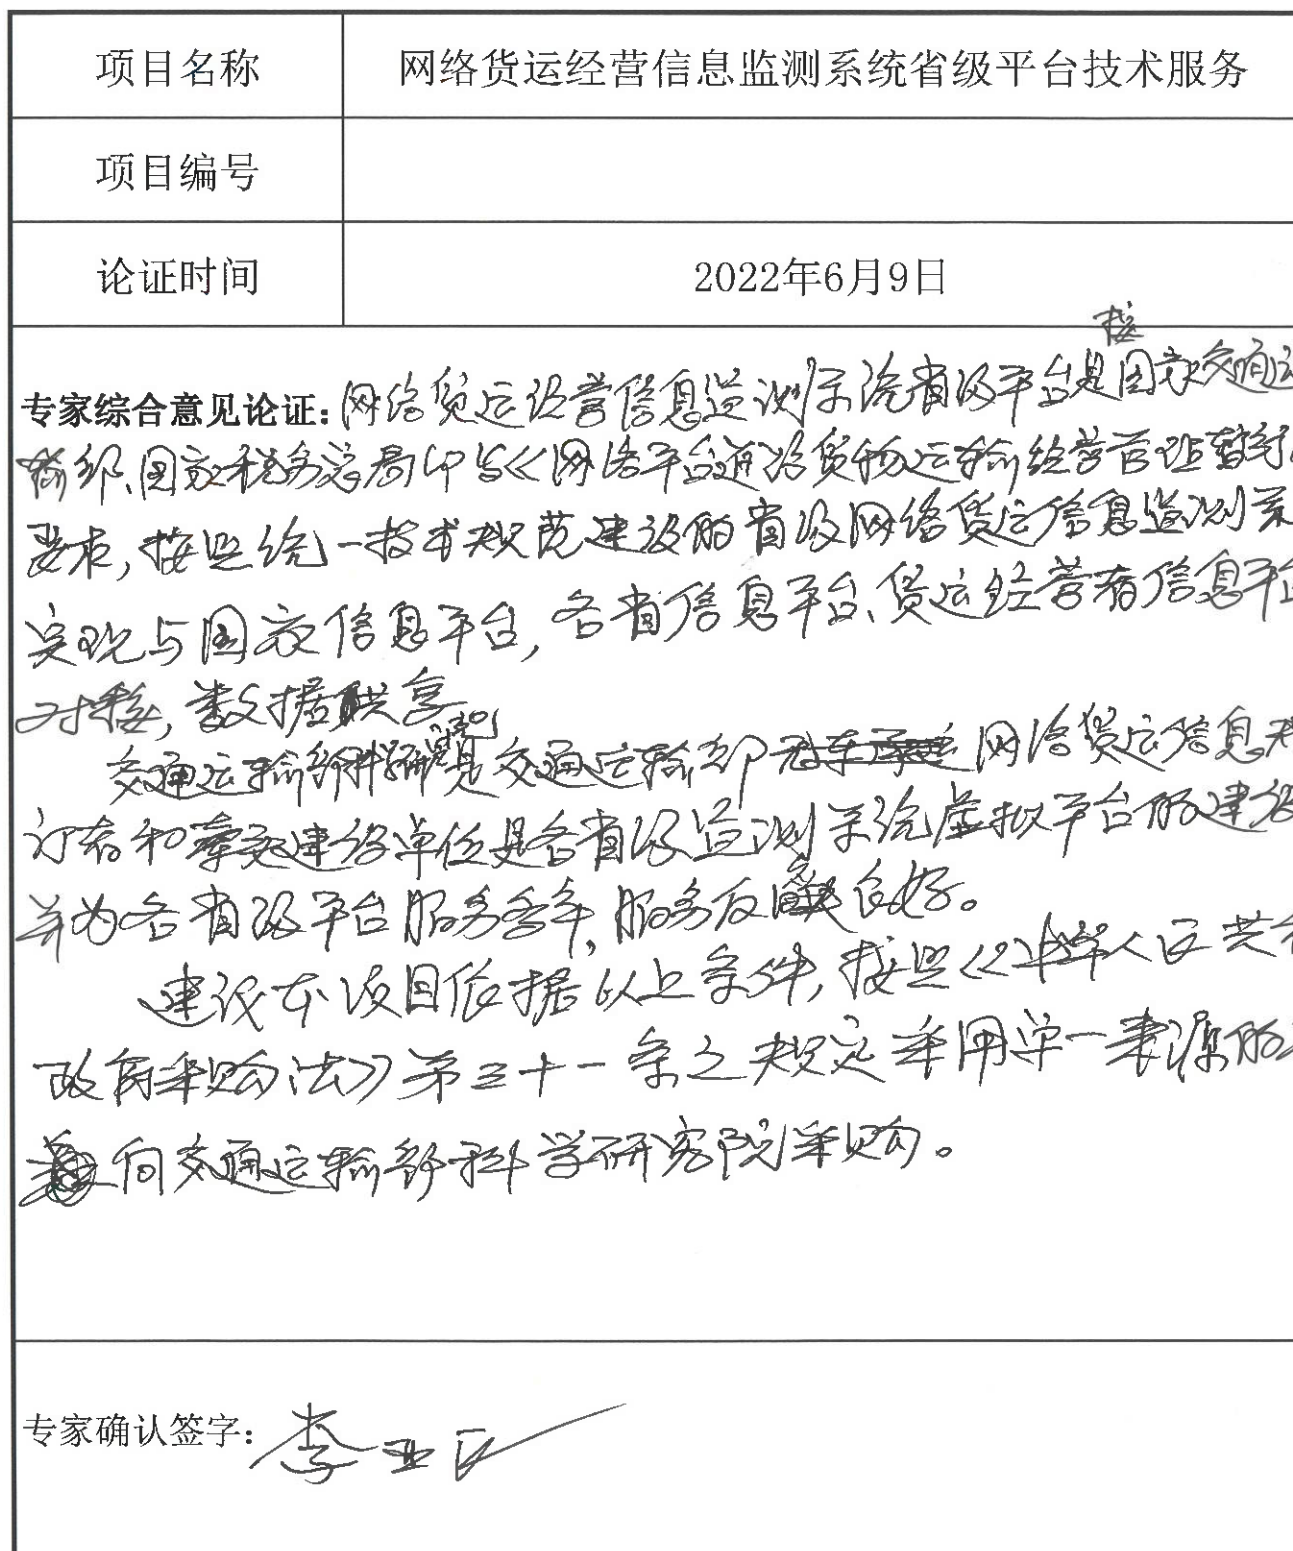 项目名称 网络货运经营信息监测系统省级平台技术服务
项目编号
论证时间 2022年6月9日
按
专家综合意见论证:网络货运经营信息监测系统省级平台是国家交通运
输部、国家税务总局印发《网络平台道路货物运输经营管理暂行
要求,按照统一技术规范建设的省级网络货运信息监测系
实现与国家信息平台,各省信息平台、货运经营者信息平台
对接,数据共享
交通运输部科研是交通运输部 网络货运信息
订者和 建设单位是各省级监测系统虚拟平台的建设
并为各省级平台服务多年,服务反映良好。
建议本项目依据以上条件,按照《中华人民共和
政府采购法》第三十一条之规定采用单一来源的
向交通运输部科学研究院采购。
专家确认签字: 李亚民